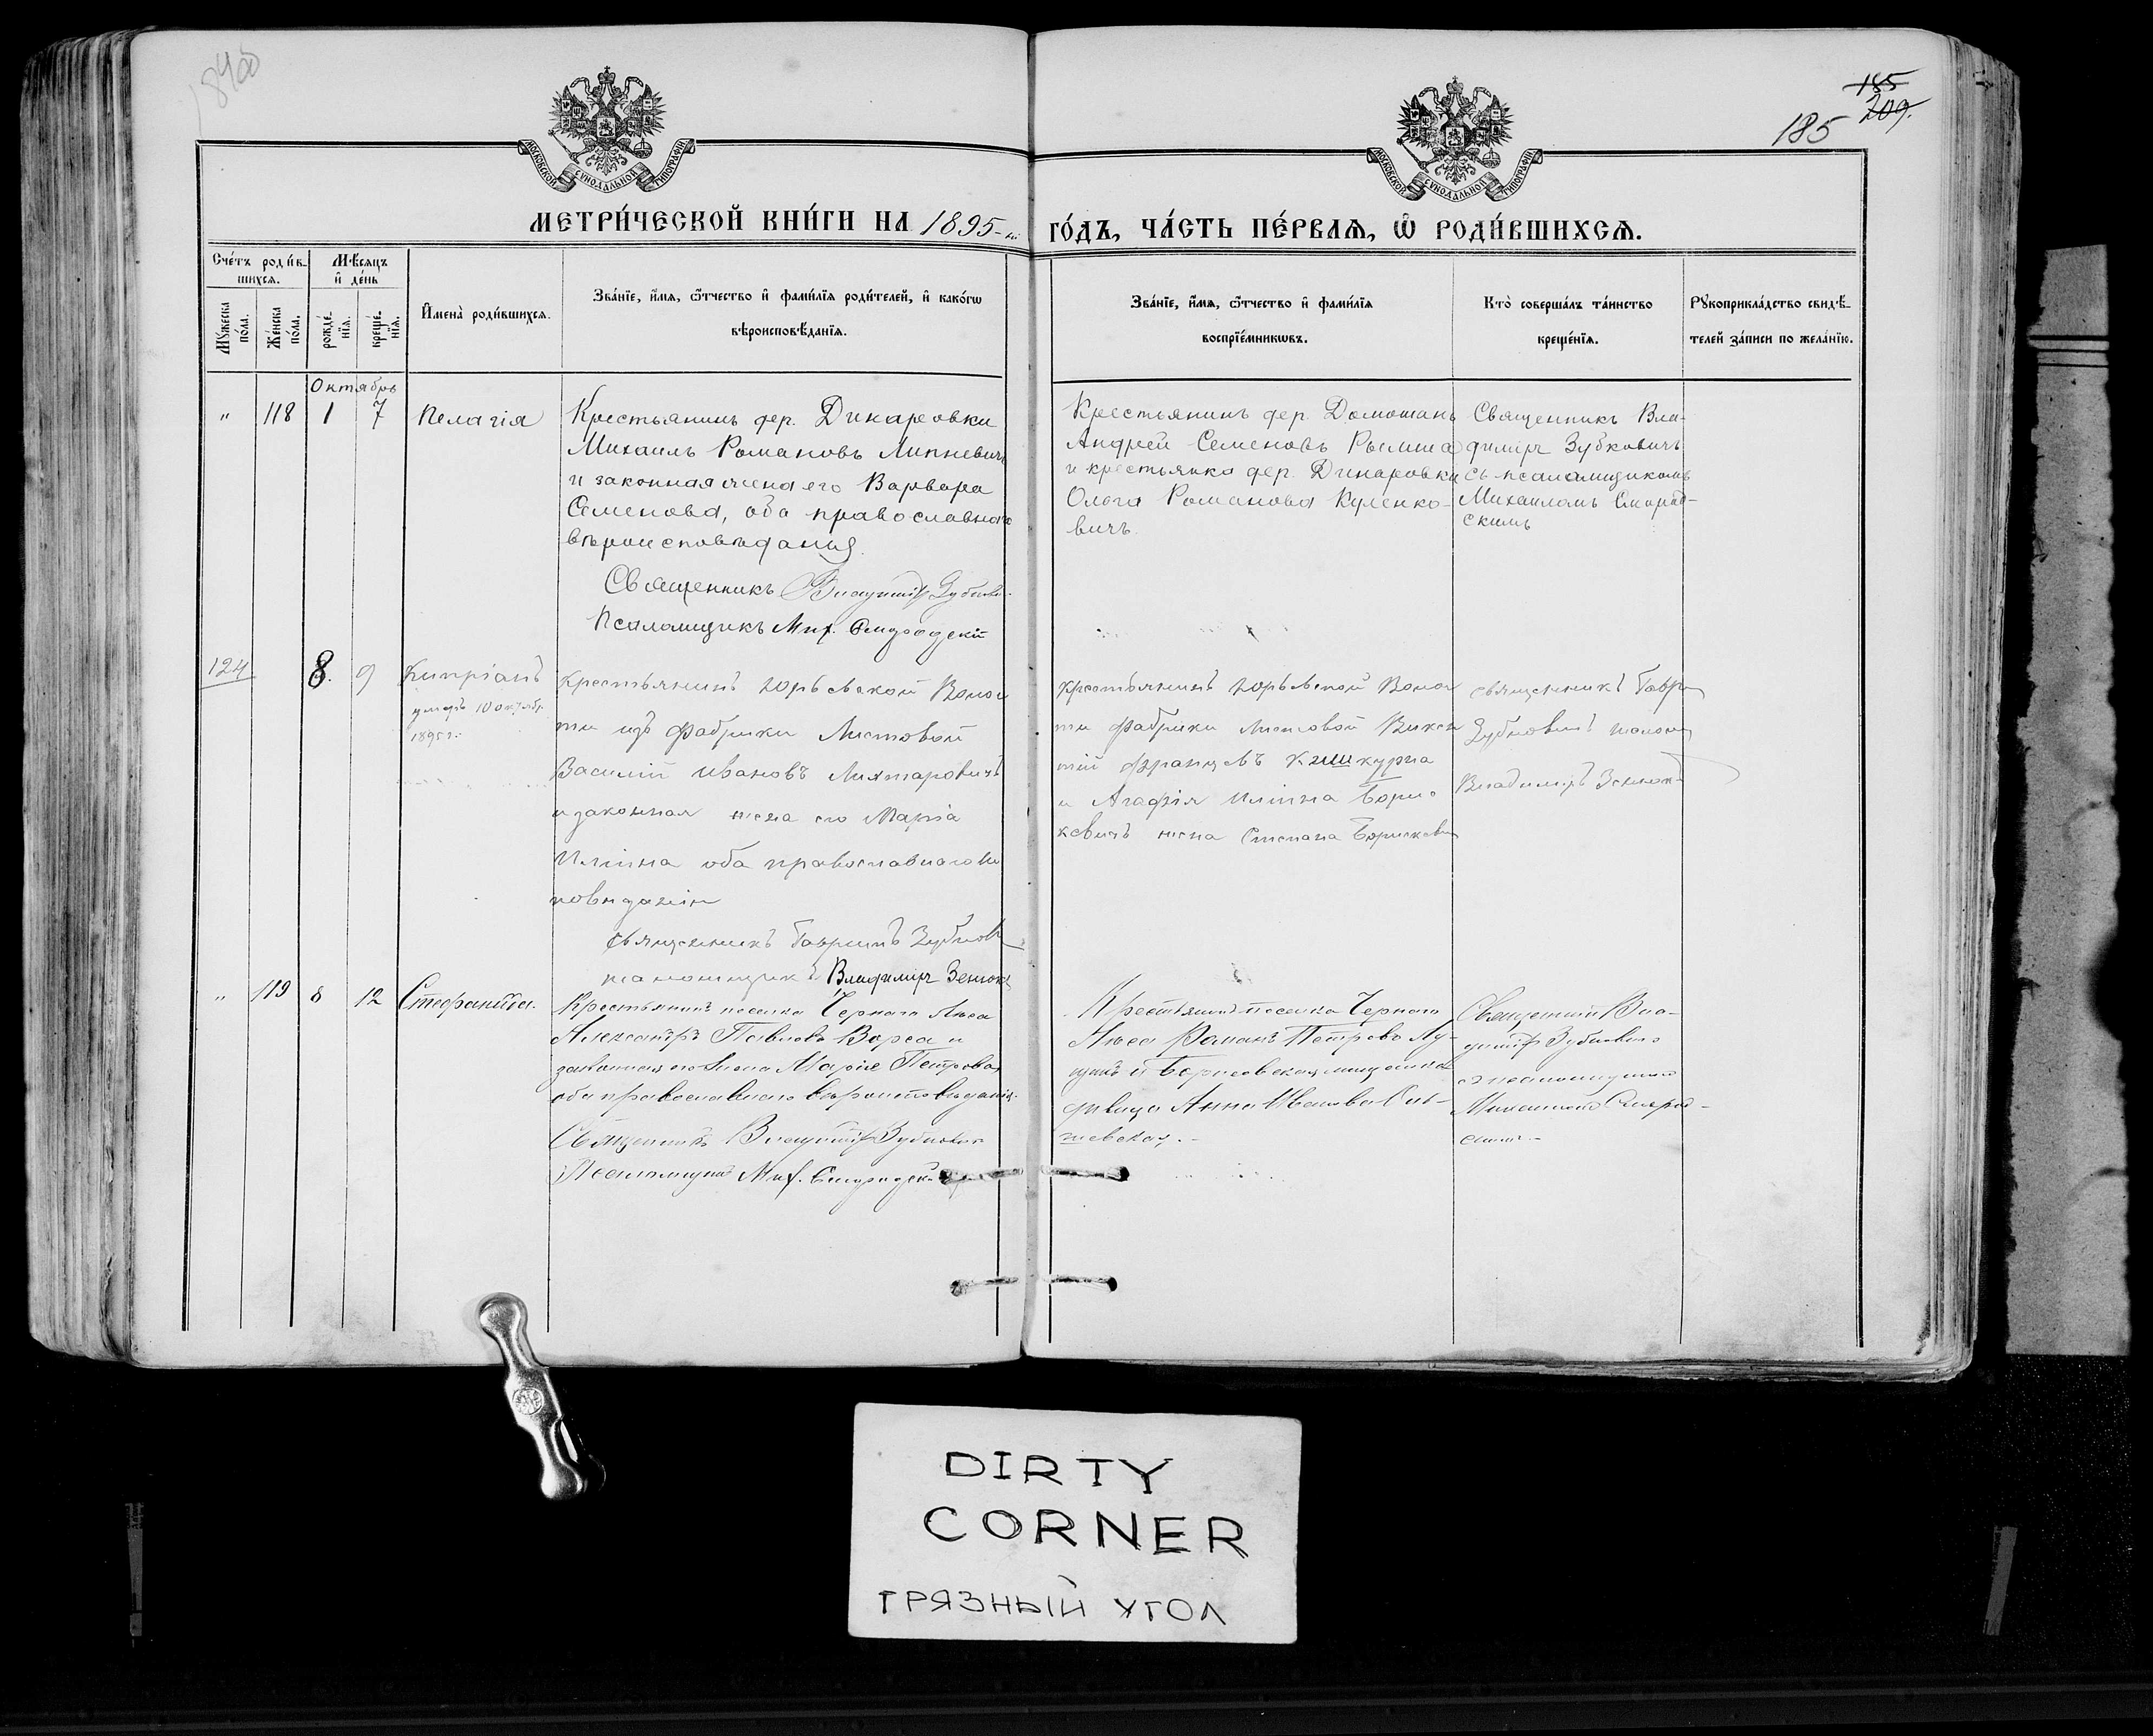 185
209.
185
МОСКОВСКОЙ СѴНОДАЛЬНОЙ ТИПОГРАФІИ
МОСКОВСКОЙ СѴНОДАЛЬНОЙ ТИПОГРАФІИ
МЕТРИ́ЧЕСКОЙ КНИ́ГИ НА 1895-й
ГО́ДЪ, ЧА́СТЬ ПЕ́РВАЯ, Ѡ҆ РОДИ́ВШИХСЯ.
Сче́тъ роди́в-
шихся.
Мѣ́сяцъ
и҆ де́нь
Мꙋ́жеска
по́ла.
Же́нска
по́ла.
рожде́-
нїя.
креще́-
нїя.
И҆мена̀ роди́вшихся.
Зва́нїе, и҆́мя, ѻ҆́тчество и҆ фами́лїя роди́телей, и҆ како́гѡ
вѣроисповѣ́данїя.
Зва́нїе, и҆́мя, ѻ҆́тчество и҆ фами́лїя
воспрїе́мникѡвъ.
Кто̀ соверша́лъ та́инство
креще́нїя.
Рꙋкоприкла́дство свидѣ́-
телей за́писи по жела́нїю.
Октябрь
" 118 1 7 Пелагія
Крестьянинъ дер. Динаровки
Михаилъ Романовъ Липневичъ
и законная жена его Варвара
Семенова, оба православнаго
вѣроисповѣданія.
Священникъ Владиміръ Зубкови
Псаломщикъ Мих. Смародскій
Крестьянинъ дер. Домошань
Андрей Семеновъ Рымша
и крестьянка дер. Динаровки
Ольга Романова Куленко-
вичъ.
Священникъ Вла-
диміръ Зубковичъ
съ псаломщикомъ
Михаиломъ Смарод-
скимъ
124 8. 9 Кипріанъ
умеръ 10 октябр.
1895 г.
Крестьянинъ Юрьевской Воло
ти изъ фабрики Листовой
Василій Ивановъ Ляхтаровичъ
и законная жена его Марія
Иліина оба православнаго ис
повѣданія
Священникъ Гавріилъ Зубкови
Владиміръ Зенюк
крестьянинъ Юрьевской Воло
ти фабрики Листовой Викен
тій Францовъ Кэшкурна
и Агафія Иліина Борис
кевичъ жена Степана Борискевич
священникъ Гавр
Зубковичъ
Владиміръ Зенюк
" 119 8 12 Стефанида.
Крестьянинъ поселка Чернаго Лѣса
Александръ Павловъ Ворса и
законная его жена Марія Петрова,
оба православнаго вѣроисповѣданія.
Священникъ Владиміръ Зубкович
Псаломщикъ Мих. Смародскій
Крестьянинъ поселка Чернаго
Лѣса Романъ Петровъ Лу-
и Борисовская мѣщанка
дѣвица Анна Иванова
шевская.-
Священникъ Вла-
диміръ Зубковичъ
съ псаломщикомъ
Михаиломъ Смарод-
скимъ.-
DIRTY
CORNER
ГРЯЗНЫЙ УГОЛ